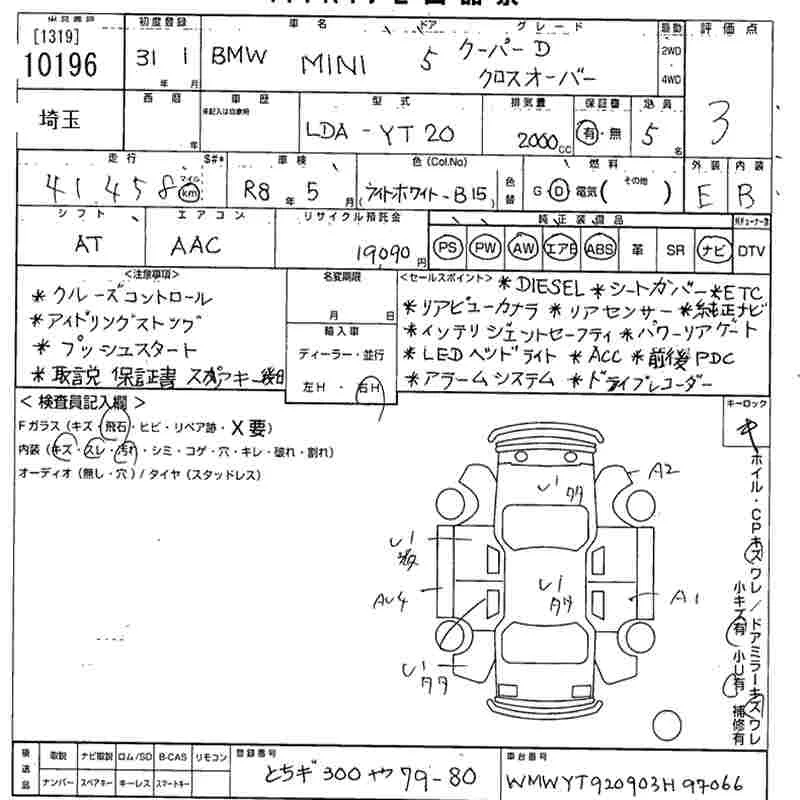 [1319]
10196
初度登録
31 1
年 月
車名 ドア グレード
BMW MINI 5 クーパーD
クロスオーバー
駆動
2WD
4WD
評価点
3
埼玉
西暦
年
車歴
未記入は自家用
型式
LDA-YT20
排気量
2000cc
保証書
有・無
定員
5名
走行 S#*
41458 マイル km
車検
R8年5月
色(Col.No)
ライトホワイト-B15
色替
燃料
G・D 電気 (その他)
外装
E
内装
B
シフト
AT
エアコン
AAC
リサイクル預託金
19090円
純正装備品
PS PW AW エアB ABS 革 SR ナビ DTV
<注意事項>
*クルーズコントロール
*アイドリングストップ
*プッシュスタート
*取説 保証書 スペアキー後日
名変期限
月 日
輸入車
ディーラー・並行
左H・右H
<セールスポイント> *DIESEL *シートカバー *ETC
*リアビューカメラ *リアセンサー *純正ナビ
*インテリジェントセーフティ *パワーリアゲート
*LEDヘッドライト *ACC *前後PDC
*アラームシステム *ドライブレコーダー
<検査員記入欄>
Fガラス(キズ・飛石・ヒビ・リペア跡・X要)
内装(キズ・スレ・汚れ・シミ・コゲ・穴・キレ・破れ・割れ)
オーディオ(無し・穴)/タイヤ(スタッドレス)
キーロック
ホイル・CPキズワレ/ドアミラーキズワレ
小キズ有 小U有 補修有
A2
U1
タタ
U1
U1
タタ
AU4
A1
U1
タタ
後送品
取説 ナビ取説 ロム/SD B-CAS リモコン
ナンバー スペアキー キーレス スマートキー
登録番号
とちぎ 300 や 79-80
車台番号
WMWYT920903H97066